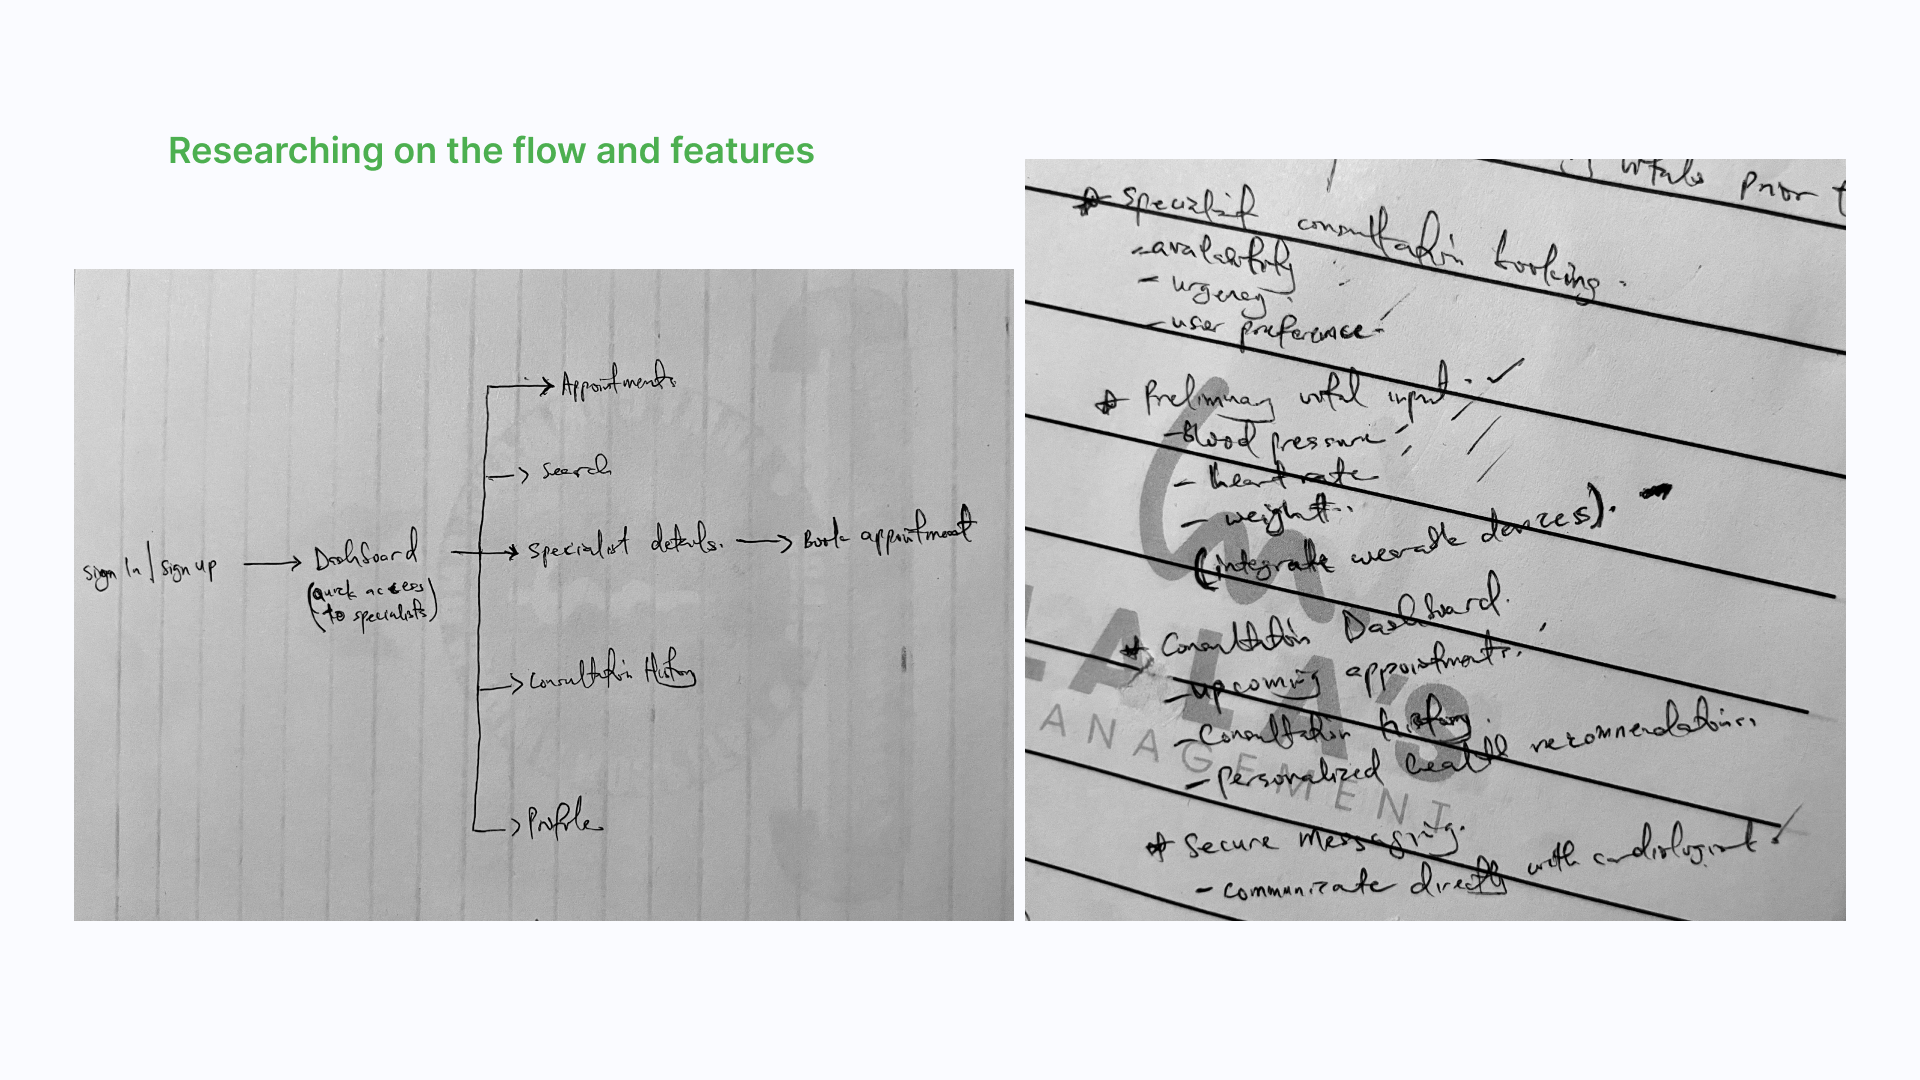 Researching on the flow and features
Appointments
Search
sign in | sign up
Dashboard
(quick access
to specialists)
Specialist details.
Book appointment
Consultation History
Profile
vitals prior
Specialist consultation booking.
- availability
- urgency.
- user preference.
Preliminary vital input.
- Blood pressure
- heart rate
- weight.
(integrate wearable devices).
Consultation Dashboard.
- upcoming appointments.
- Consultation history.
- personalized health recommendations.
Secure messaging.
- communicate directly with cardiologist.
LALA'S
MANAGEMENT